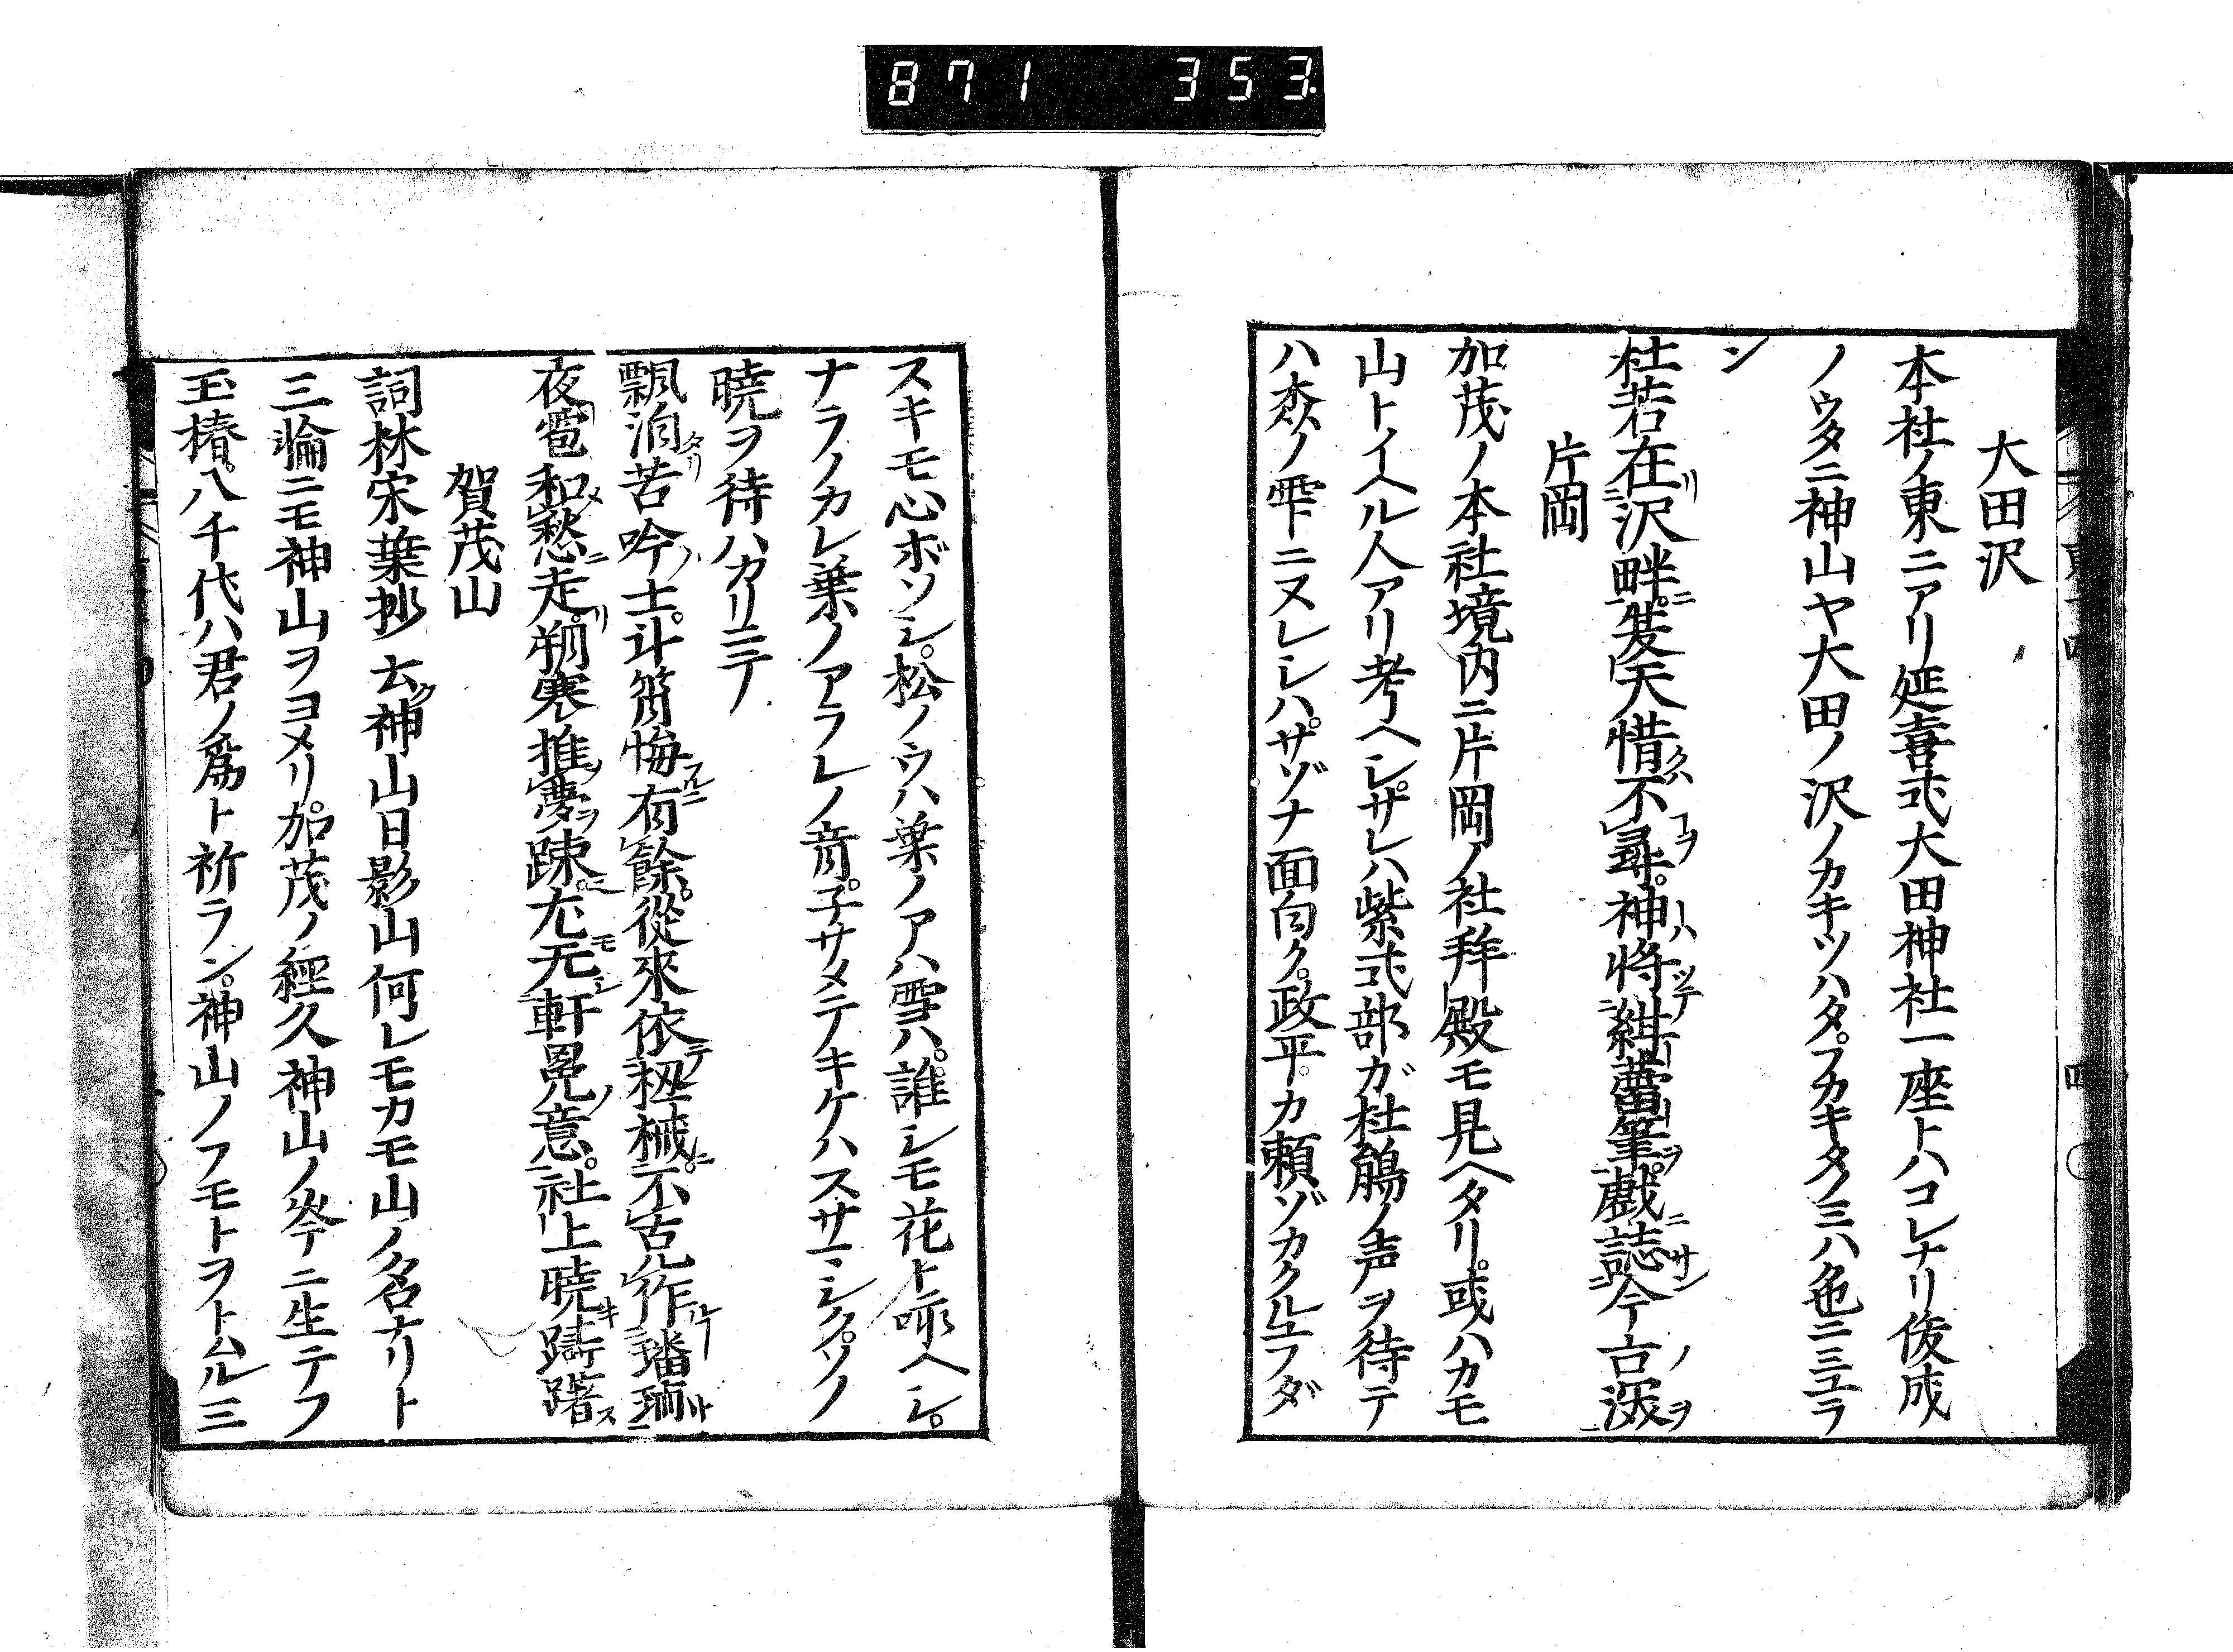 871 353
大田沢
本社ノ東ニアリ延喜式大田神社一座トハコレナリ俊成
ノウタニ神山ヤ大田ノ沢ノカキツハタ。フカキタノミハ色ニミユラ
ン
杜若在リ沢畔ニ。発天惜クハ不尋コヲ。神将紺蕾筆ヲ。戯ニ誌サン今古ノ潊ヲ
片岡
加茂ノ本社境内ニ片岡ノ社拜殿モ見ヘタリ。或ハカモ
山トイヘル人アリ考ヘシ。サレハ紫式部ガ杜鵑ノ声ヲ待テ
ハ森ノ雫ニヌレシハ。サゾナ面白ク。政平カ頼ゾカクルユフダ
スキモ心ボソシ。松ノウハ葉ノアハ雪ハ。誰シモ花ト詠ヘシ。
ナラノカレ葉ノアラレノ音。子サメテキケハスサマシク。ソノ
暁ヲ待ハカリニテ
飄泊タリ苦吟ノ士。斗筲悔フルニ有餘。從來依テ柩械ニ。不古作ルヿ璠璵ト
夜雹和メ愁ニ走リ。朔寒推ノ夢ヲ踈ニ。尤无モシ軒冕ノ意。社上暁キ躊躇ス
賀茂山
詞林宋葉抄云ク神山日影山何レモカモ山ノ名ナリト
三惀ニモ神山ヲヨメリ。加茂ノ經久神山ノ岑ニ生テフ
玉椿。八千代ハ君ノ爲ト祈ラン。神山ノフモトヲトムル三